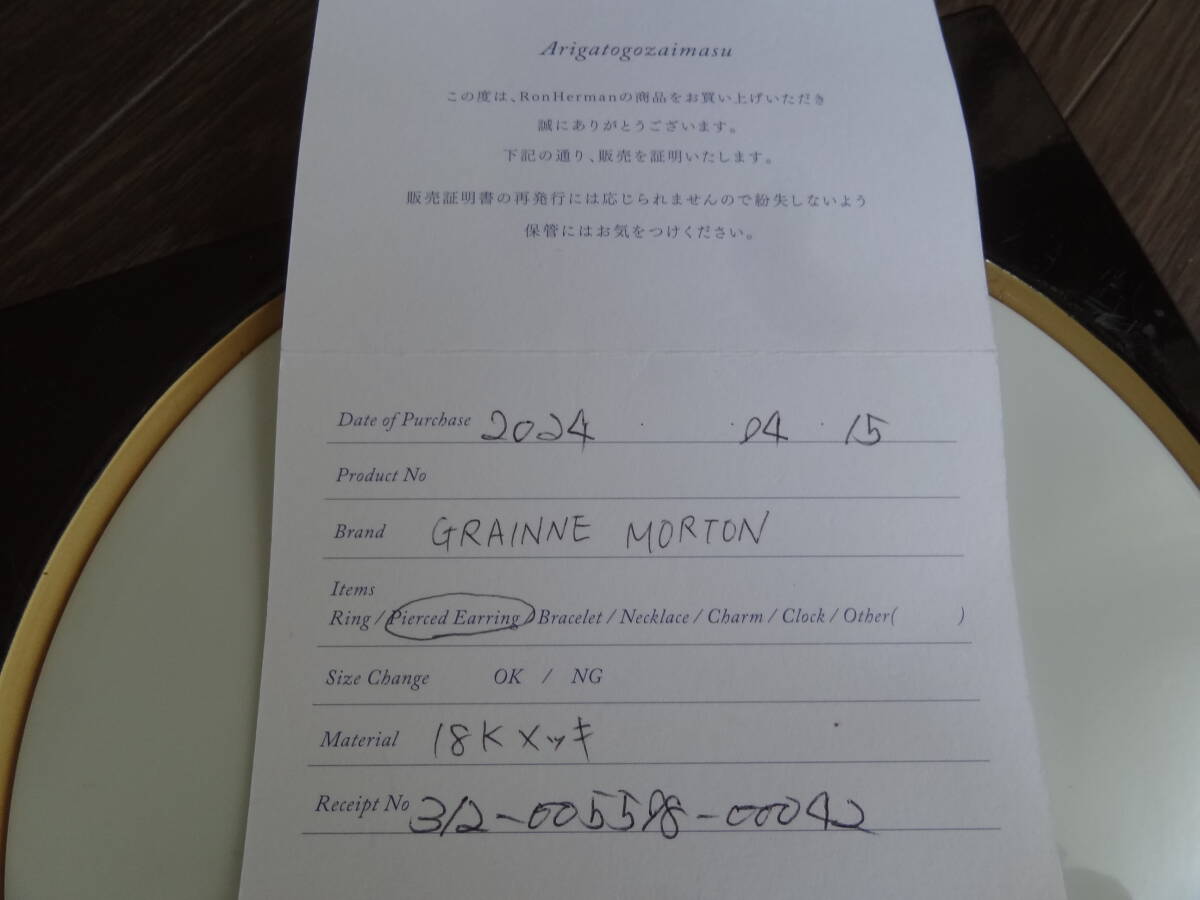 Arigatogozaimasu
この度は、RonHermanの商品をお買い上げいただき
誠にありがとうございます。
下記の通り、販売を証明いたします。
販売証明書の再発行には応じられませんので紛失しないよう
保管にはお気をつけください。
Date of Purchase 2024 . 04 . 15
Product No
Brand GRAINNE MORTON
Items
Ring / Pierced Earring / Bracelet / Necklace / Charm / Clock / Other( )
Size Change OK / NG
Material 18K メッキ
Receipt No